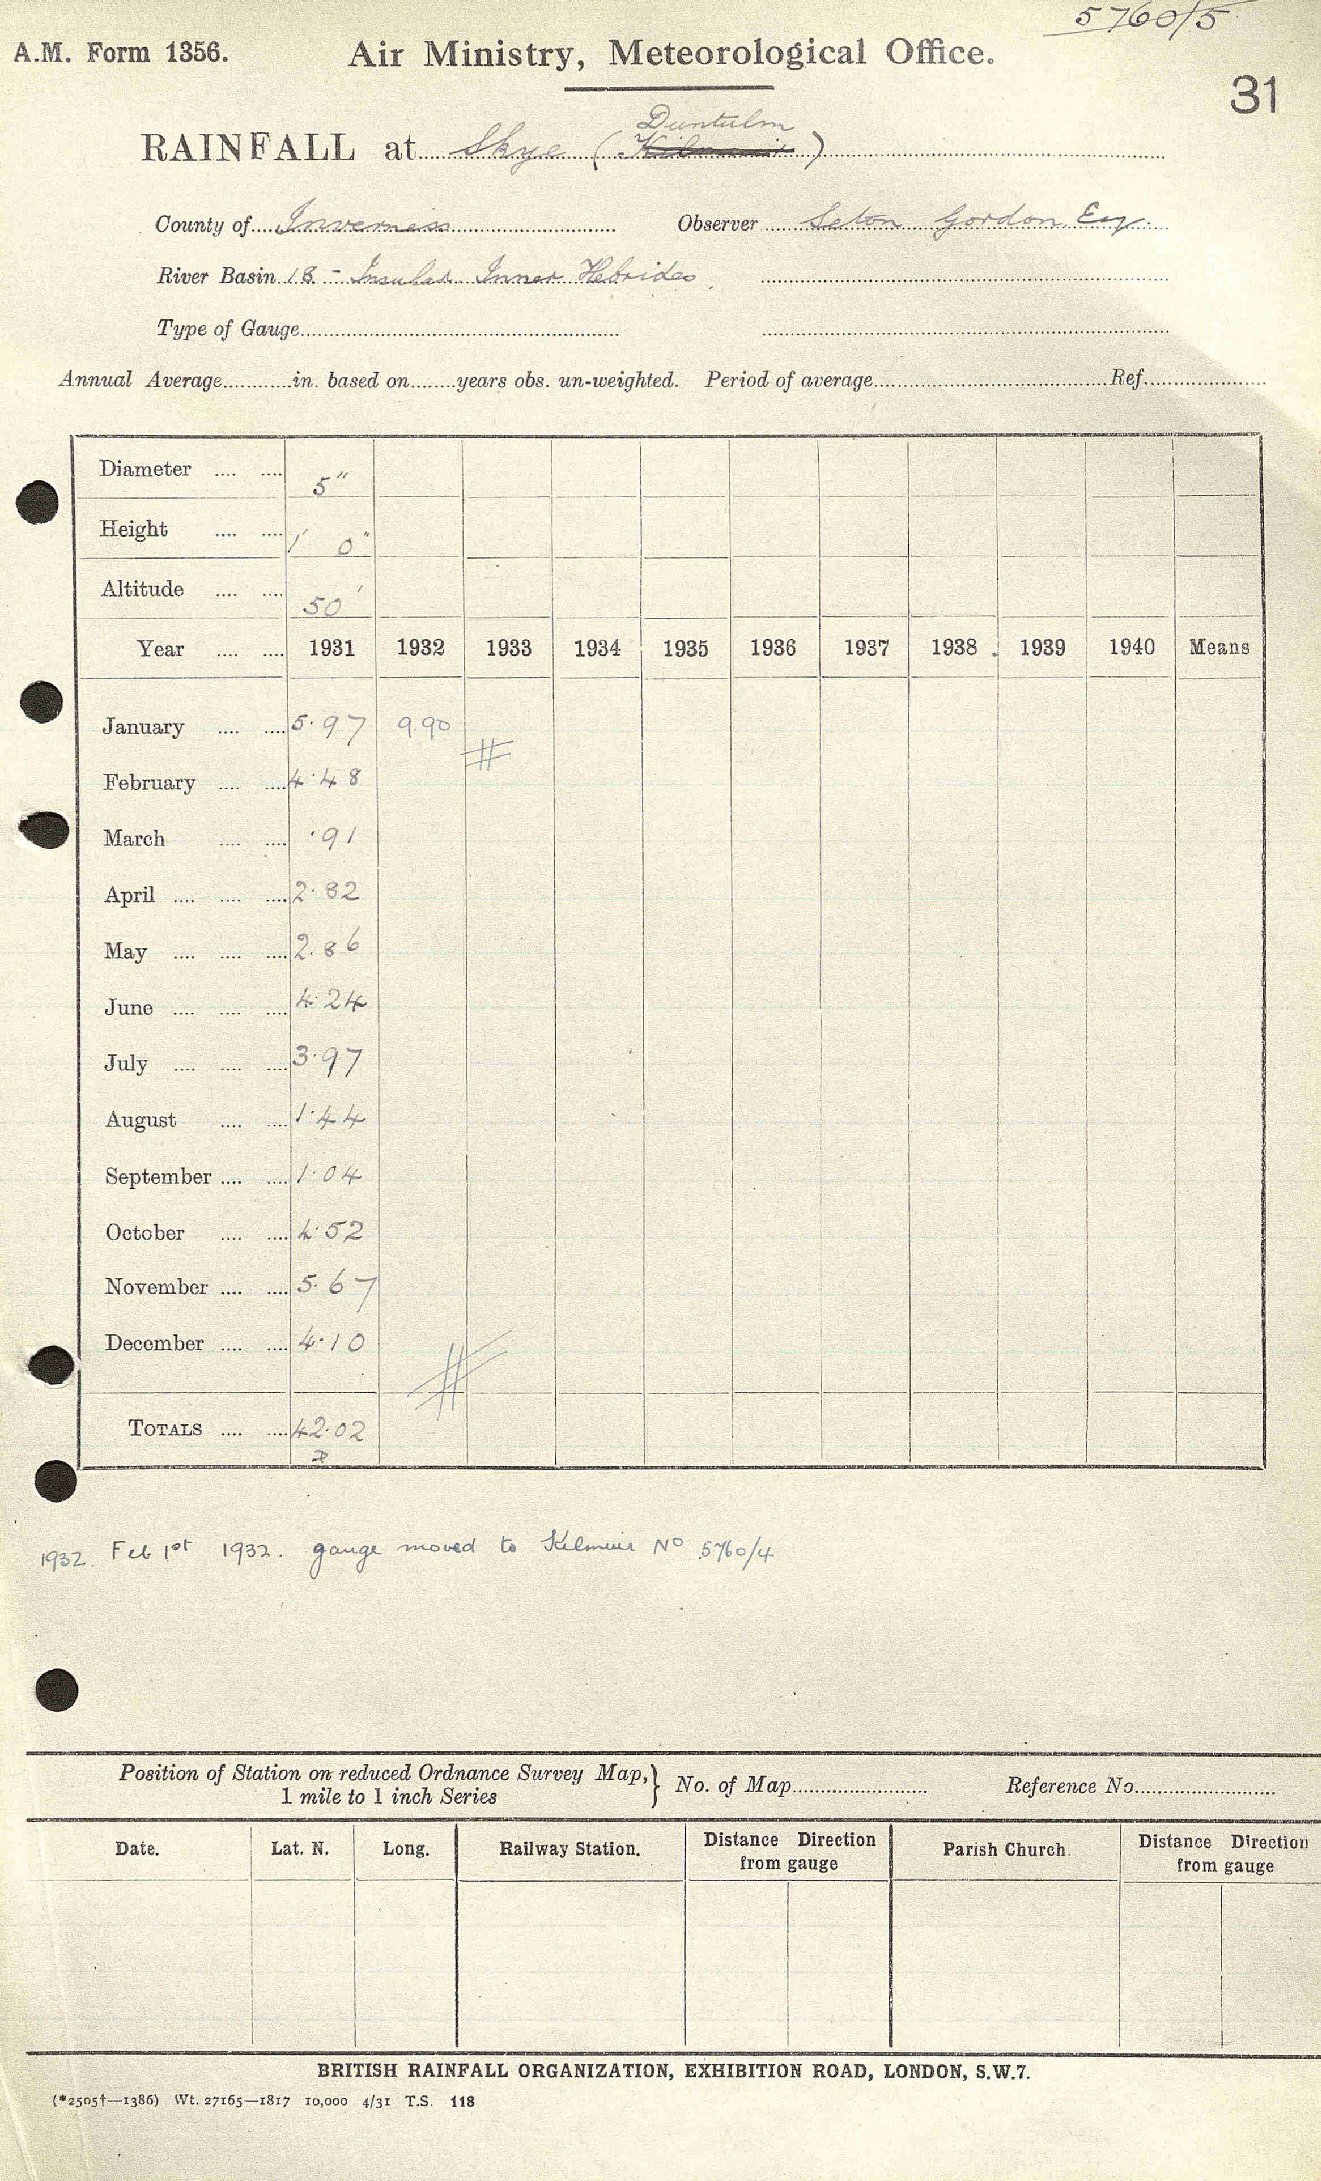 5760/5
A.M. Form 1356. Air Ministry, Meteorological Office.
31
Duntulm
RAINFALL at Skye (Kilmuir)
County of Inverness Observer Seton Gordon Esq.
River Basin 18 - Insular Inner Hebrides
Type of Gauge
Annual Average in. based on years obs. un-weighted. Period of average Ref.
Diameter 5"
Height 1' 0"
Altitude 50'
Year 1931 1932 1933 1934 1935 1936 1937 1938 1939 1940 Means
January 5.97 9.90
February 4.48
March .91
April 2.82
May 2.86
June 4.24
July 3.97
August 1.44
September 1.04
October 4.52
November 5.67
December 4.10
TOTALS 42.02
1932. Feb 1st 1932. gauge moved to Kilmuir No 5760/4
Position of Station on reduced Ordnance Survey Map, } No. of Map Reference No.
1 mile to 1 inch Series
Date. Lat. N. Long. Railway Station. Distance Direction from gauge Parish Church Distance Direction from gauge
BRITISH RAINFALL ORGANIZATION, EXHIBITION ROAD, LONDON, S.W.7.
(*2505†—1386) Wt. 27165—1817 10,000 4/31 T.S. 118